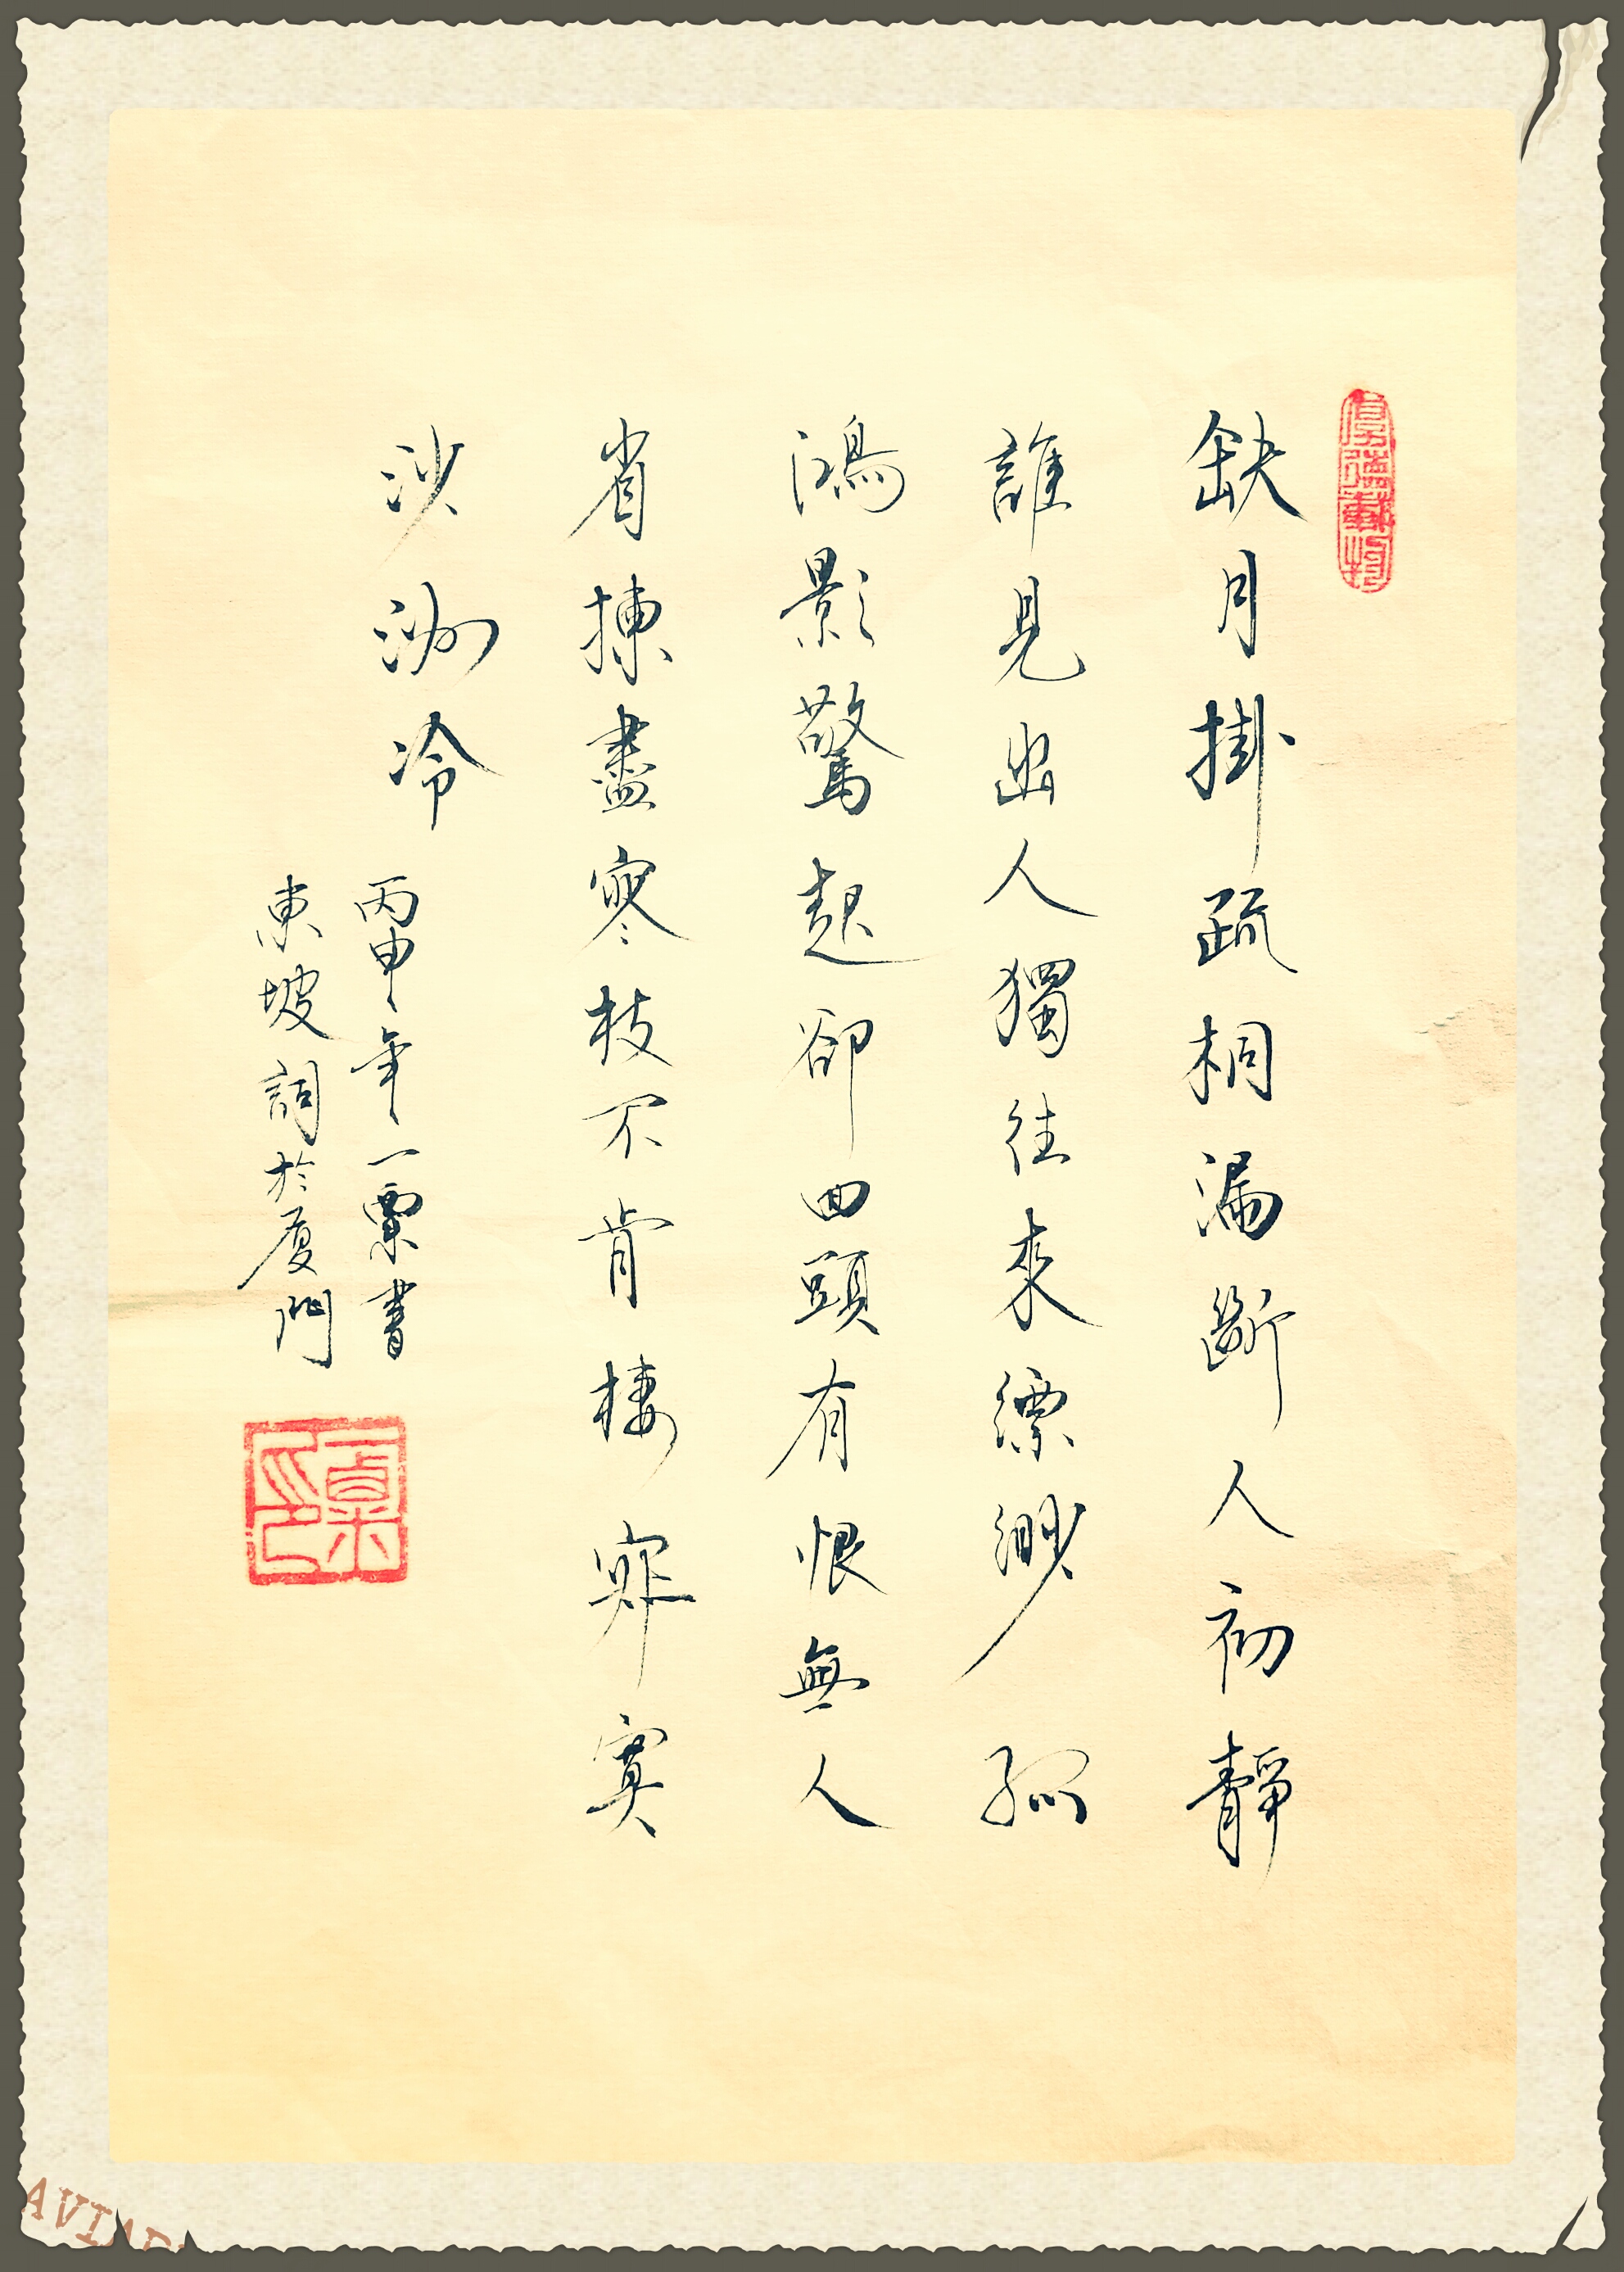 厚德載物
缺月掛疏桐漏斷人初靜
誰見幽人獨往來縹緲孤
鴻影驚起卻回頭有恨無人
省揀盡寒枝不肯棲寂寞
沙洲冷
丙申年一粟書
東坡詞於廈門
一粟之印
AVIA